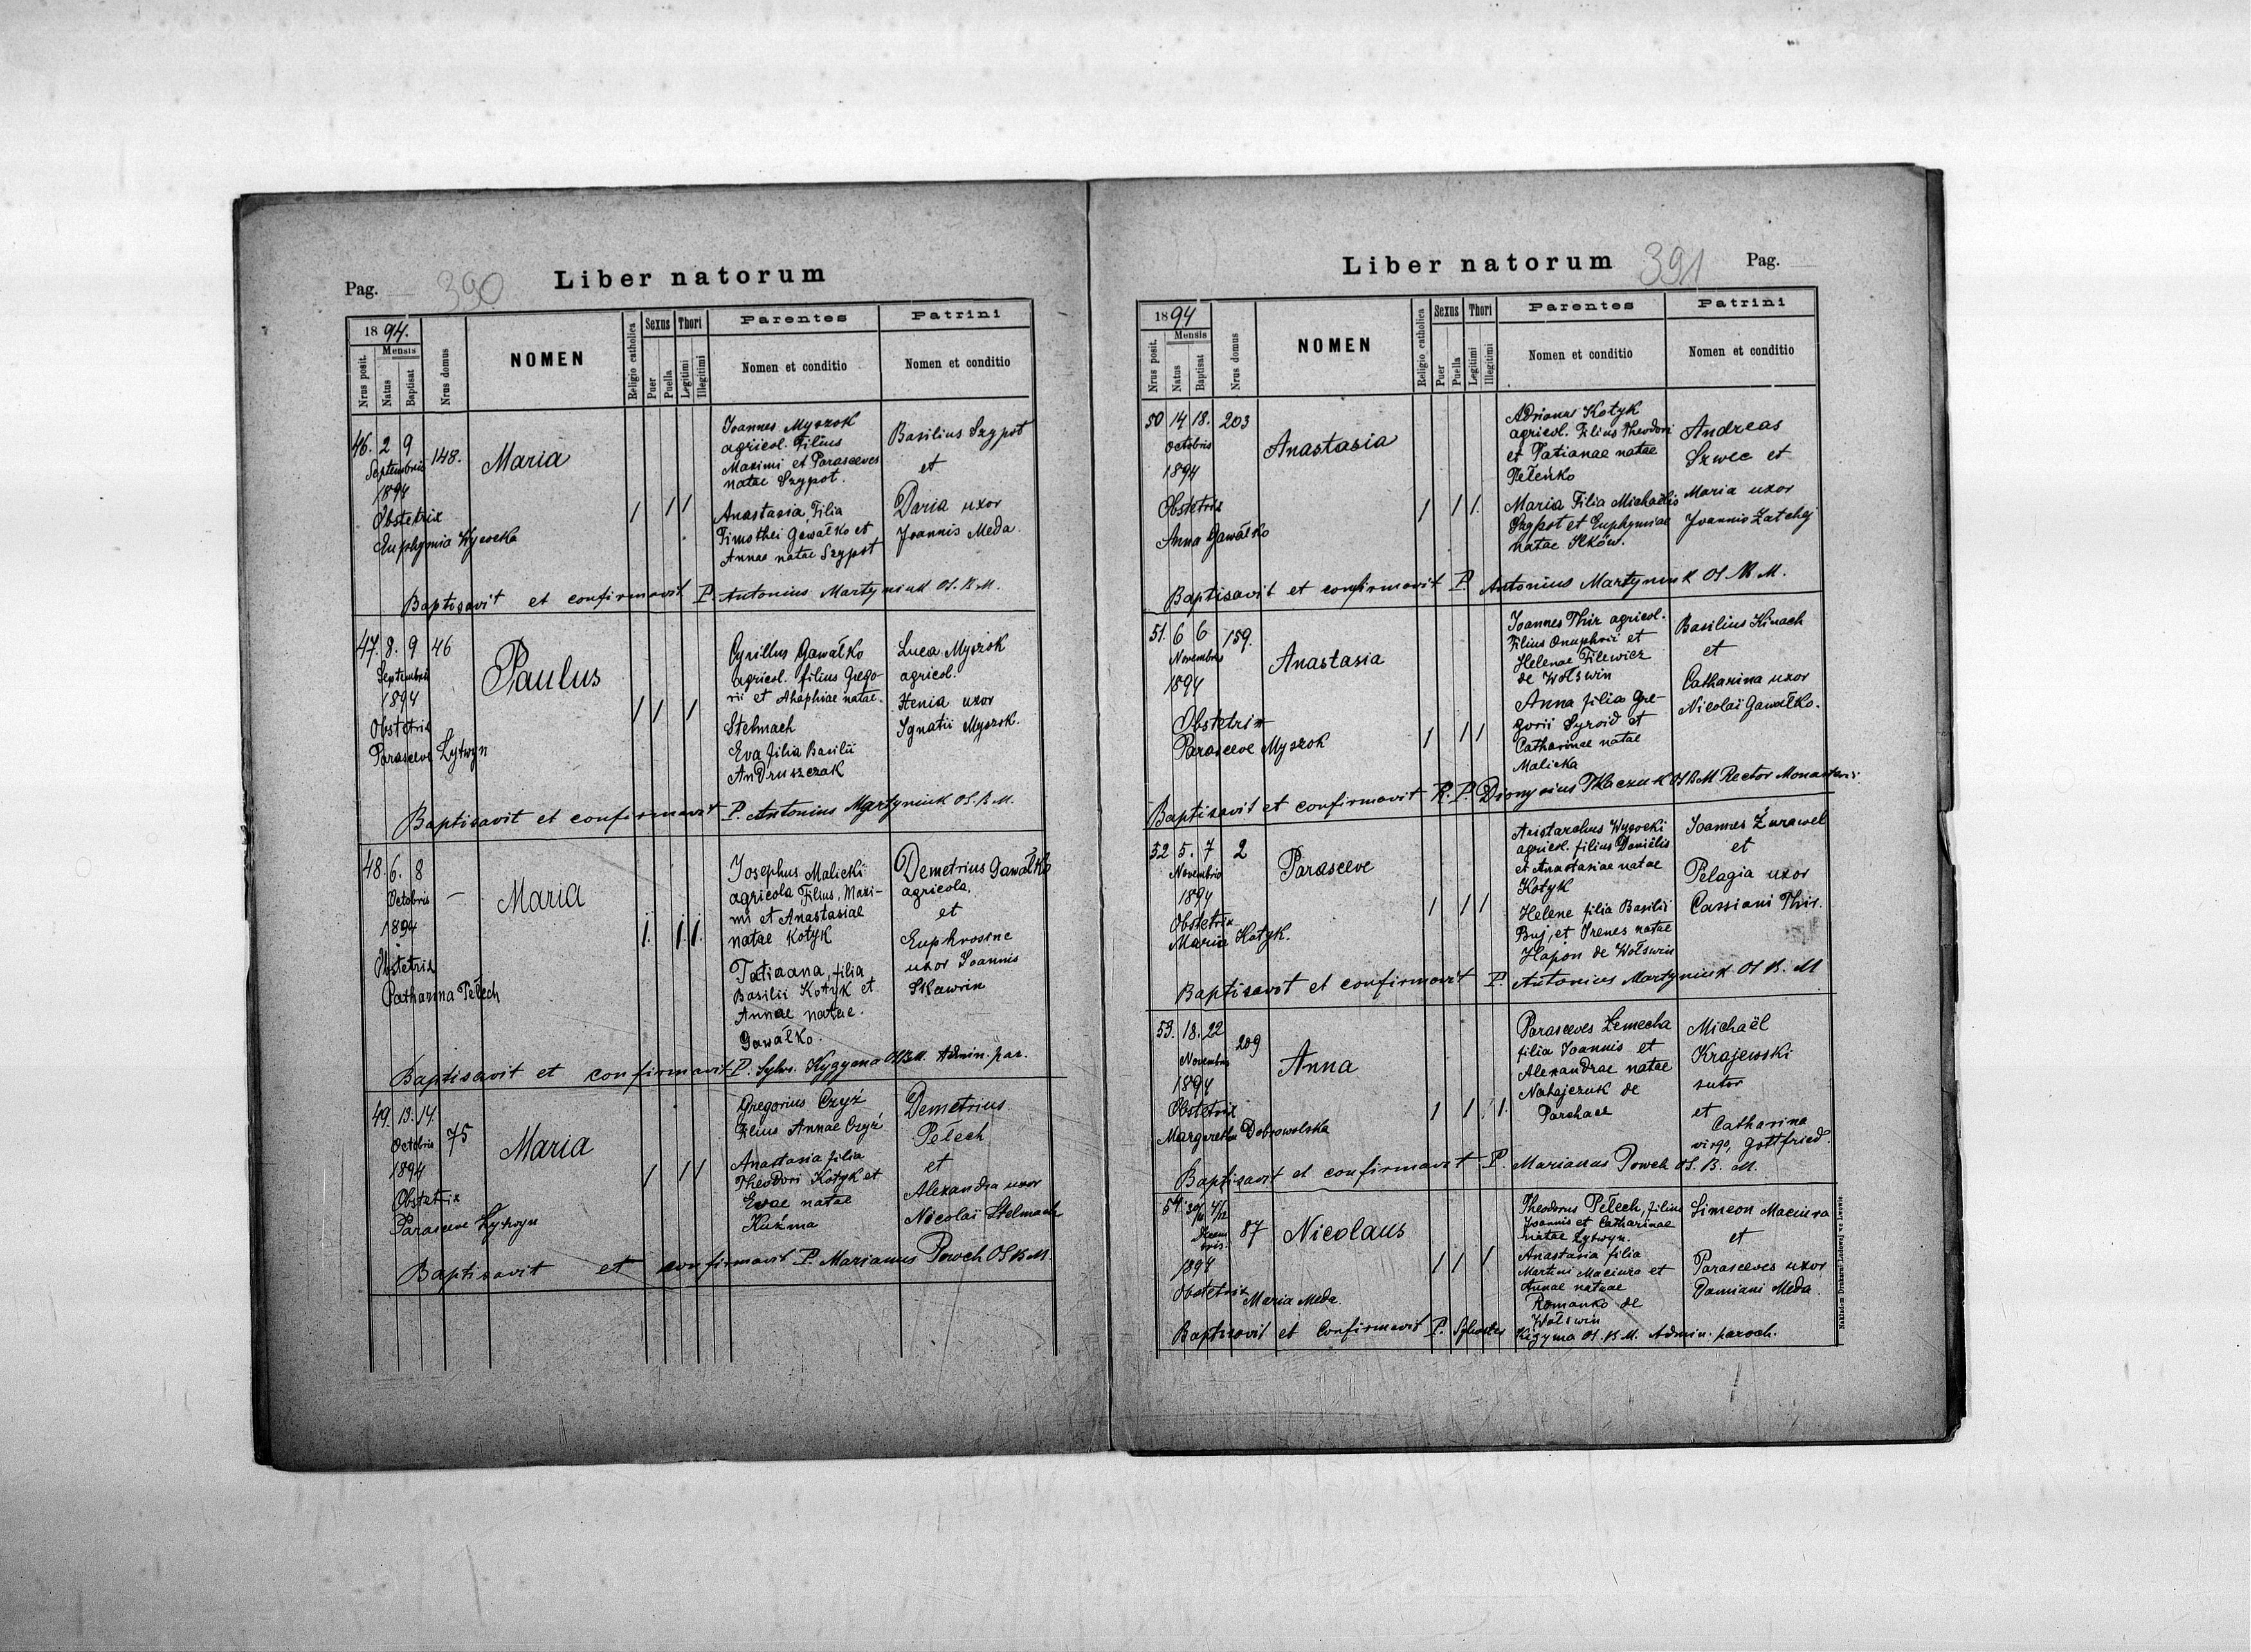 Pag. 390 Liber natorum
1894.
Nrus posit.
Mensis
Natus
Baptisat
Nrus domus
NOMEN
Religio catholica
Sexus
Puer
Puella
Thori
Legitimi
Illegitimi
Parentes
Nomen et conditio
Patrini
Nomen et conditio
46. 2 9 148.
Septembris
1894
Obstetrix
Euphymia Wysocka
Maria
1 1 1
Joannes Myszok
agricol. Filius
Maximi et Parasceves
natae Szypot.
Anastasia, Filia
Timothei Gawałko et
Annae natae Szypot
Basilius Szypot
et
Daria uxor
Joannis Meda.
Baptisavit et confirmavit P. Antonius Martyniuk OS.B.M.
47. 8. 9 46
Septembris
1894
Obstetrix
Parasceve Lytwyn
Paulus
1 1 1
Cyrillus Gawałko
agricol. filius Grego-
rii et Ahaphiae natae.
Stelmach
Eva filia Basilii
Andruszczak
Luca Myszok
agricol.
Xenia uxor
Ignatii Myszok.
Baptisavit et confirmavit P. Antonius Martyniuk OS.B.M.
48. 6. 8 —
Octobris
1894
Obstetrix
Catharina Pełech
Maria
1. 1. 1.
Josephus Malicki
agricola Filius, Maxi-
mi et Anastasiae
natae Kotyk
Tatiaana, filia
Basilii Kotyk et
Annae natae.
Gawałko.
Demetrius Gawałko
agricola,
et
Euphrosine
uxor Joannis
Skawrin
Baptisavit et confirmavit P. Sylv. Kyzyma OSBM. Admin. par.
49. 13. 14. 75
Octobris
1894
Obstetrix
Parasceve Lytwyn
Maria
1 1 1
Gregorius Czyż
Filius Annae Czyż
Anastasia filia
Theodori Kotyk et
Evae natae
Kuźma
Demetrius
Pełech
et
Alexandra uxor
Nicolai Stelmach
Baptisavit et confirmavit P. Marianus Powch OSBM.
Liber natorum 391 Pag.
1894
Nrus posit.
Mensis
Natus
Baptisat
Nrus domus
NOMEN
Religio catholica
Sexus
Puer
Puella
Thori
Legitimi
Illegitimi
Parentes
Nomen et conditio
Patrini
Nomen et conditio
50 14 18. 203
Octobris
1894
Obstetrix
Anna Gawałko
Anastasia
1 1 1.
Adrianus Kotyk
agricol. Filius Theodori
et Tatianae natae
Pełeńko
Maria Filia Michaelis
Szypot et Euphymiae
natae Ilków.
Andreas
Szwec et
Maria uxor
Joannis Zatchej
Baptisavit et confirmavit P. Antonius Martyniuk OS.B.M.
51. 6 6 159.
Novembris
1894
Obstetrix
Parasceve Myszok
Anastasia
1 1 1
Joannes Thir agricol.
Filius Onuphrii et
Helenae Filewicz
de Wołswin
Anna filia Gre-
gorii Syroid et
Catharinae natae
Malicka
Basilius Kinach
et
Catharina uxor
Nicolai Gawałko.
Baptisavit et confirmavit R.P. Dionysius Tkaczuk OSBM Rector Monasterii
52 5. 7 2
Novembris
1894
Obstetrix
Maria Kotyk.
Parasceve
1 1 1
Aristarchus Wysocki
agricol. filius Daniēlis
et Anastasiae natae
Kotyk
Helene filia Basilii
Buj, et Irenes natae
Hapon de Wołswin
Joannes Żurawel
et
Pelagia uxor
Cassiani Thir.
Baptisavit et confirmavit P. Antonius Martyniuk OS.B.M
53. 18. 22 209
Novembris
1894
Obstetrix
Margaretha Dobrowolska
Anna
1 1. 1.
Parasceves Lemecha
filia Joannis et
Alexandrae natae
Nahajczuk de
Parchacz
Michaël
Krajewski
sutor
et
Catharina
virgo, Gottfried.
Baptisavit et confirmavit P. Marianus Powch OS.B.M.
54. 30/11 4/12 87
Decem
bris.
1894
Obstetrix Maria Meda.
Nicolaus
1 1 1
Theodorus Pełech, filius
Joannis et Catharinae
natae Lytwyn.
Anastasia filia
Martini Maciura et
Annae natae
Romanko de
Wołswin
Simeon Maciura
et
Parasceves uxor
Damiani Meda.
Baptisavit et Confirmavit P. Sylvester Kizyma OS.B.M. Admin. paroch.
Nakładem Drukarni Ludowej we Lwowie